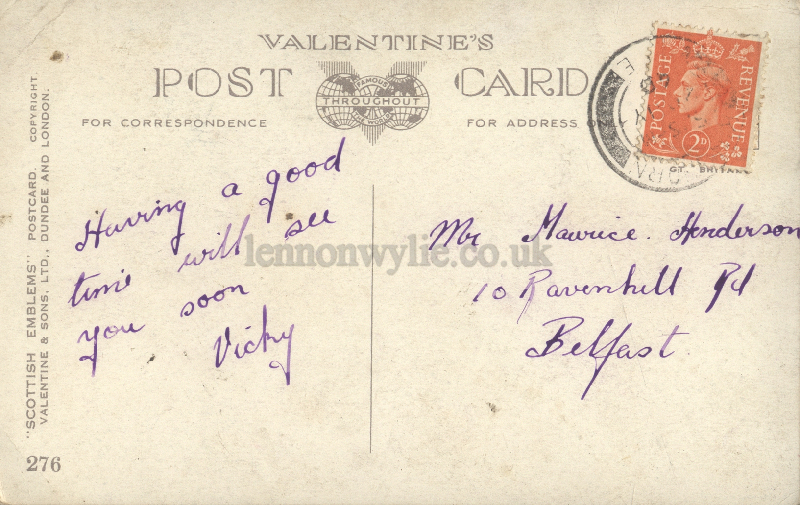 VALENTINE'S
POST CARD
FAMOUS
THROUGHOUT
THE WORLD
FOR CORRESPONDENCE
FOR ADDRESS
Having a good
time will see
you soon
Vicky
Mr Maurice. Henderson
10 Ravenhill Rd
Belfast.
POSTAGE
REVENUE
2D
"SCOTTISH EMBLEMS" POSTCARD. COPYRIGHT
VALENTINE & SONS, LTD., DUNDEE AND LONDON.
276
lennonwylie.co.uk